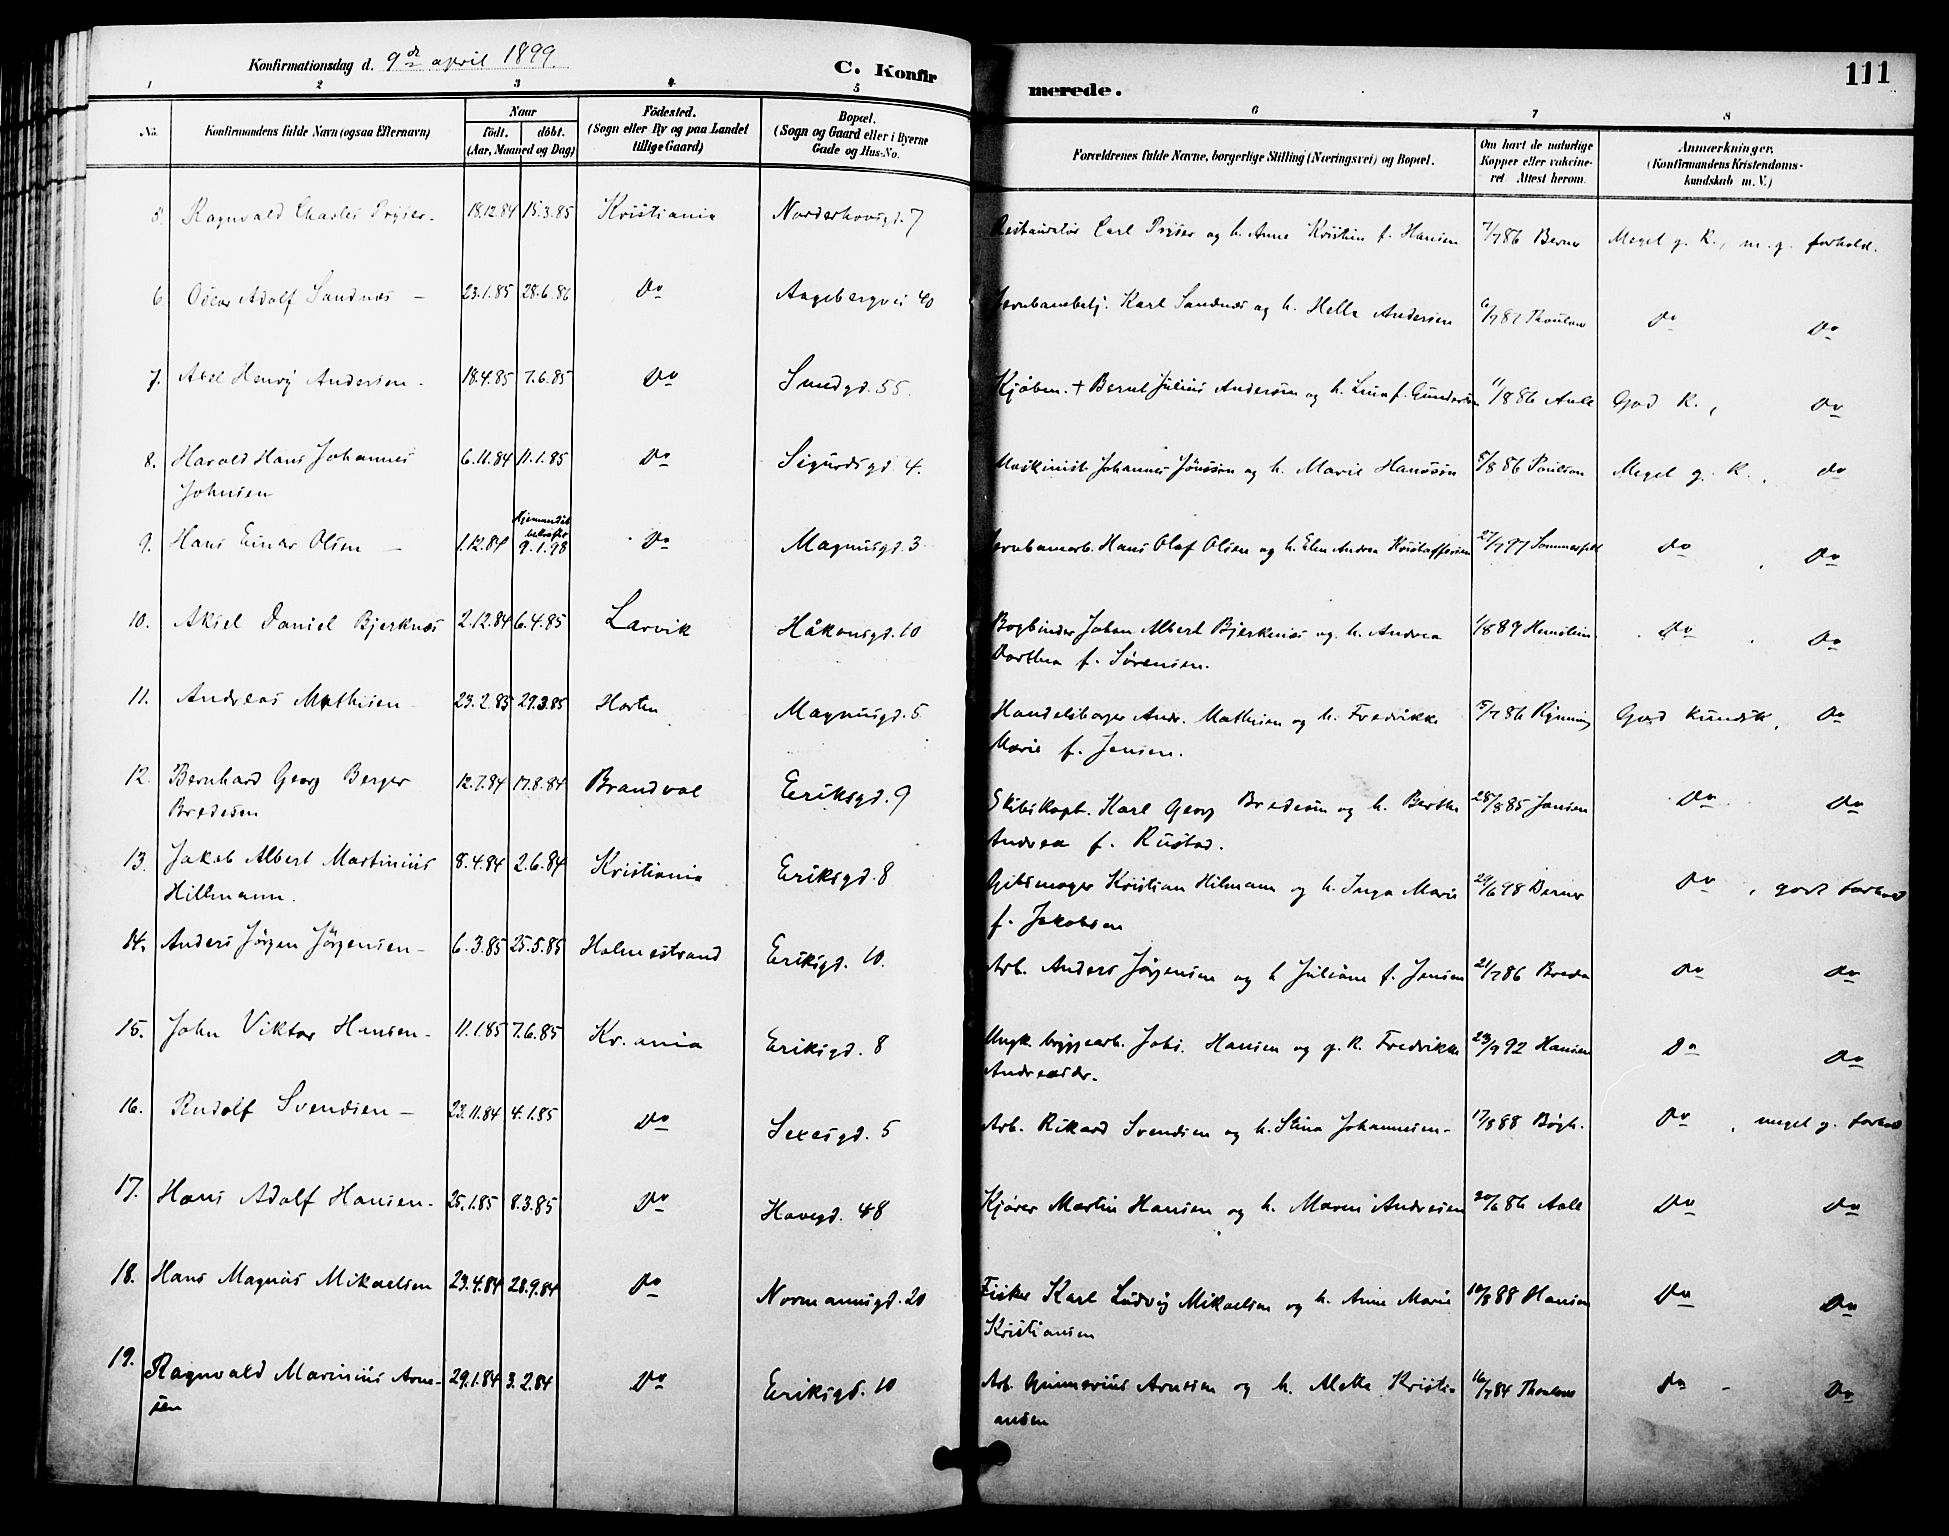 Konfirmationsdag d. 9de april 1899.
C. Konfirmerede.
111
1 2 3 4 5 6 7 8
No. Konfirmandens fulde Navn (ogsaa Efternavn) Naar født. døbt. (Aar, Maaned og Dag) Fødested. (Sogn eller By og paa Landet tillige Gaard) Bopæl. (Sogn og Gaard eller i Byerne Gade og Hus-No. Forældrenes fulde Navne, borgerlige Stilling (Næringsvei) og Bopæl. Om havt de naturlige Kopper eller vakcineret. Attest herom. Anmærkninger. (Konfirmandens Kristendomskundskab m. V.)
5. Ragnvald Charles Pryser - 18.12.84 15.3.85 Kristiania Norderhovsgd. 7 Restauratør Carl Pryser og h. Anne Kristine f. Hansen 7/7 86 Berner Meget g. K., m. g. forhold.
6. Oscar Adolf Sandnæs - 23.1.85 28.6.86 Do Aagebergvei 40 Jernbanebetj. Karl Sandnæs og h. Helle Andersen 6/7 87 Thaulow Do Do
7. Axel Henry Andersen - 18.4.85 7.6.85 Do Smedgd. 55. Kjøbm. + Bernt Julius Andersen og h. Lina f. Gundersen 11/8 86 Aall God K., Do
8. Harald Hans Johannes 6.11.84 11.1.85 Do Sigurdsgd 4. Maskinist Johannes Jonsson og h. Marie Hansson 5/8 86 Paulson Meget g. K., do
Johnsen
9. Hans Einar Olsen - 1.12.84 Hjemmedåb bekræftet 9.1.98 Do Magnusgd. 3 Jernbanearb. Hans Olaf Olsen og h. Elen Andrea Kristoffersen 27/7 97 Sommerfelt Do Do
10. Aksel Daniel Bjerknæs 2.12.84 6.4.85 Larvik Håkonsgd. 10 Bogbinder Johan Albert Bjerknæs og h. Andrea 1/8 89 Do Do
Dorthea f. Sørensen.
11. Andreas Mathisen 23.2.85 29.3.85 Horten Magnusgd. 5 Handelsborger Andr. Mathisen og h. Fredrikke 5/7 86 Rynning God Kundsk., Do
Marie f. Jensen.
12. Bernhard Georg Berger 12.7.84 17.8.84 Brandval Eriksgd. 9 Skibskapt. Karl Georg Bredesen og h. Berthe 28/8 85 Jansen Do Do
Bredesen Andrea f. Rustad.
13. Jakob Albert Martinius 8.4.84 2.6.84 Kristiania Eriksgd. 8 Gibsmager Kristian Hilmann og h. Inga Marie 29/6 98 Berner Do, godt forhold
Hillmann. f. Jakobsen
14. Anders Jørgen Jørgensen - 6.3.85 25.5.85 Holmestrand Eriksgd. 10. Arb. Anders Jørgensen og h Juliane f. Jensen 21/7 86 Breda Do Do
15. John Viktor Hansen - 11.1.85 7.6.85 Kr.ania Eriksgd. 8 Ungk. bryggearb. Johs. Hansen og p. K. Fredrikke 29/9 92 Hansen Do Do
Andreasdr.
16. Rudolf Svendsen - 23.11.84 4.1.85 Do Sexesgd. 5 Arb. Rikard Svendsen og h. Stina Johannesen - 17/8 88 Bøgh. Do, meget g. forhold
17. Hans Adolf Hansen - 25.1.85 8.3.85 Do Havegd. 48 Kjører Martin Hansen og h. Maren Andresen 20/6 86 Aall Do Do
18. Hans Magnus Mikaelsen 23.4.84 28.9.84 Do Normannsgd. 20 Fisker Karl Ludvig Mikaelsen og h. Anne Marie 10/8 88 Hansen Do Do
Kristiansen
19. Ragnvald Marinius Arne- 29.1.84 3.2.84 Do Eriksgd. 10 Arb. Gunnerius Arnesen og h. Mette Kristi- 16/7 84 Thaulow do - Do
sen ansen